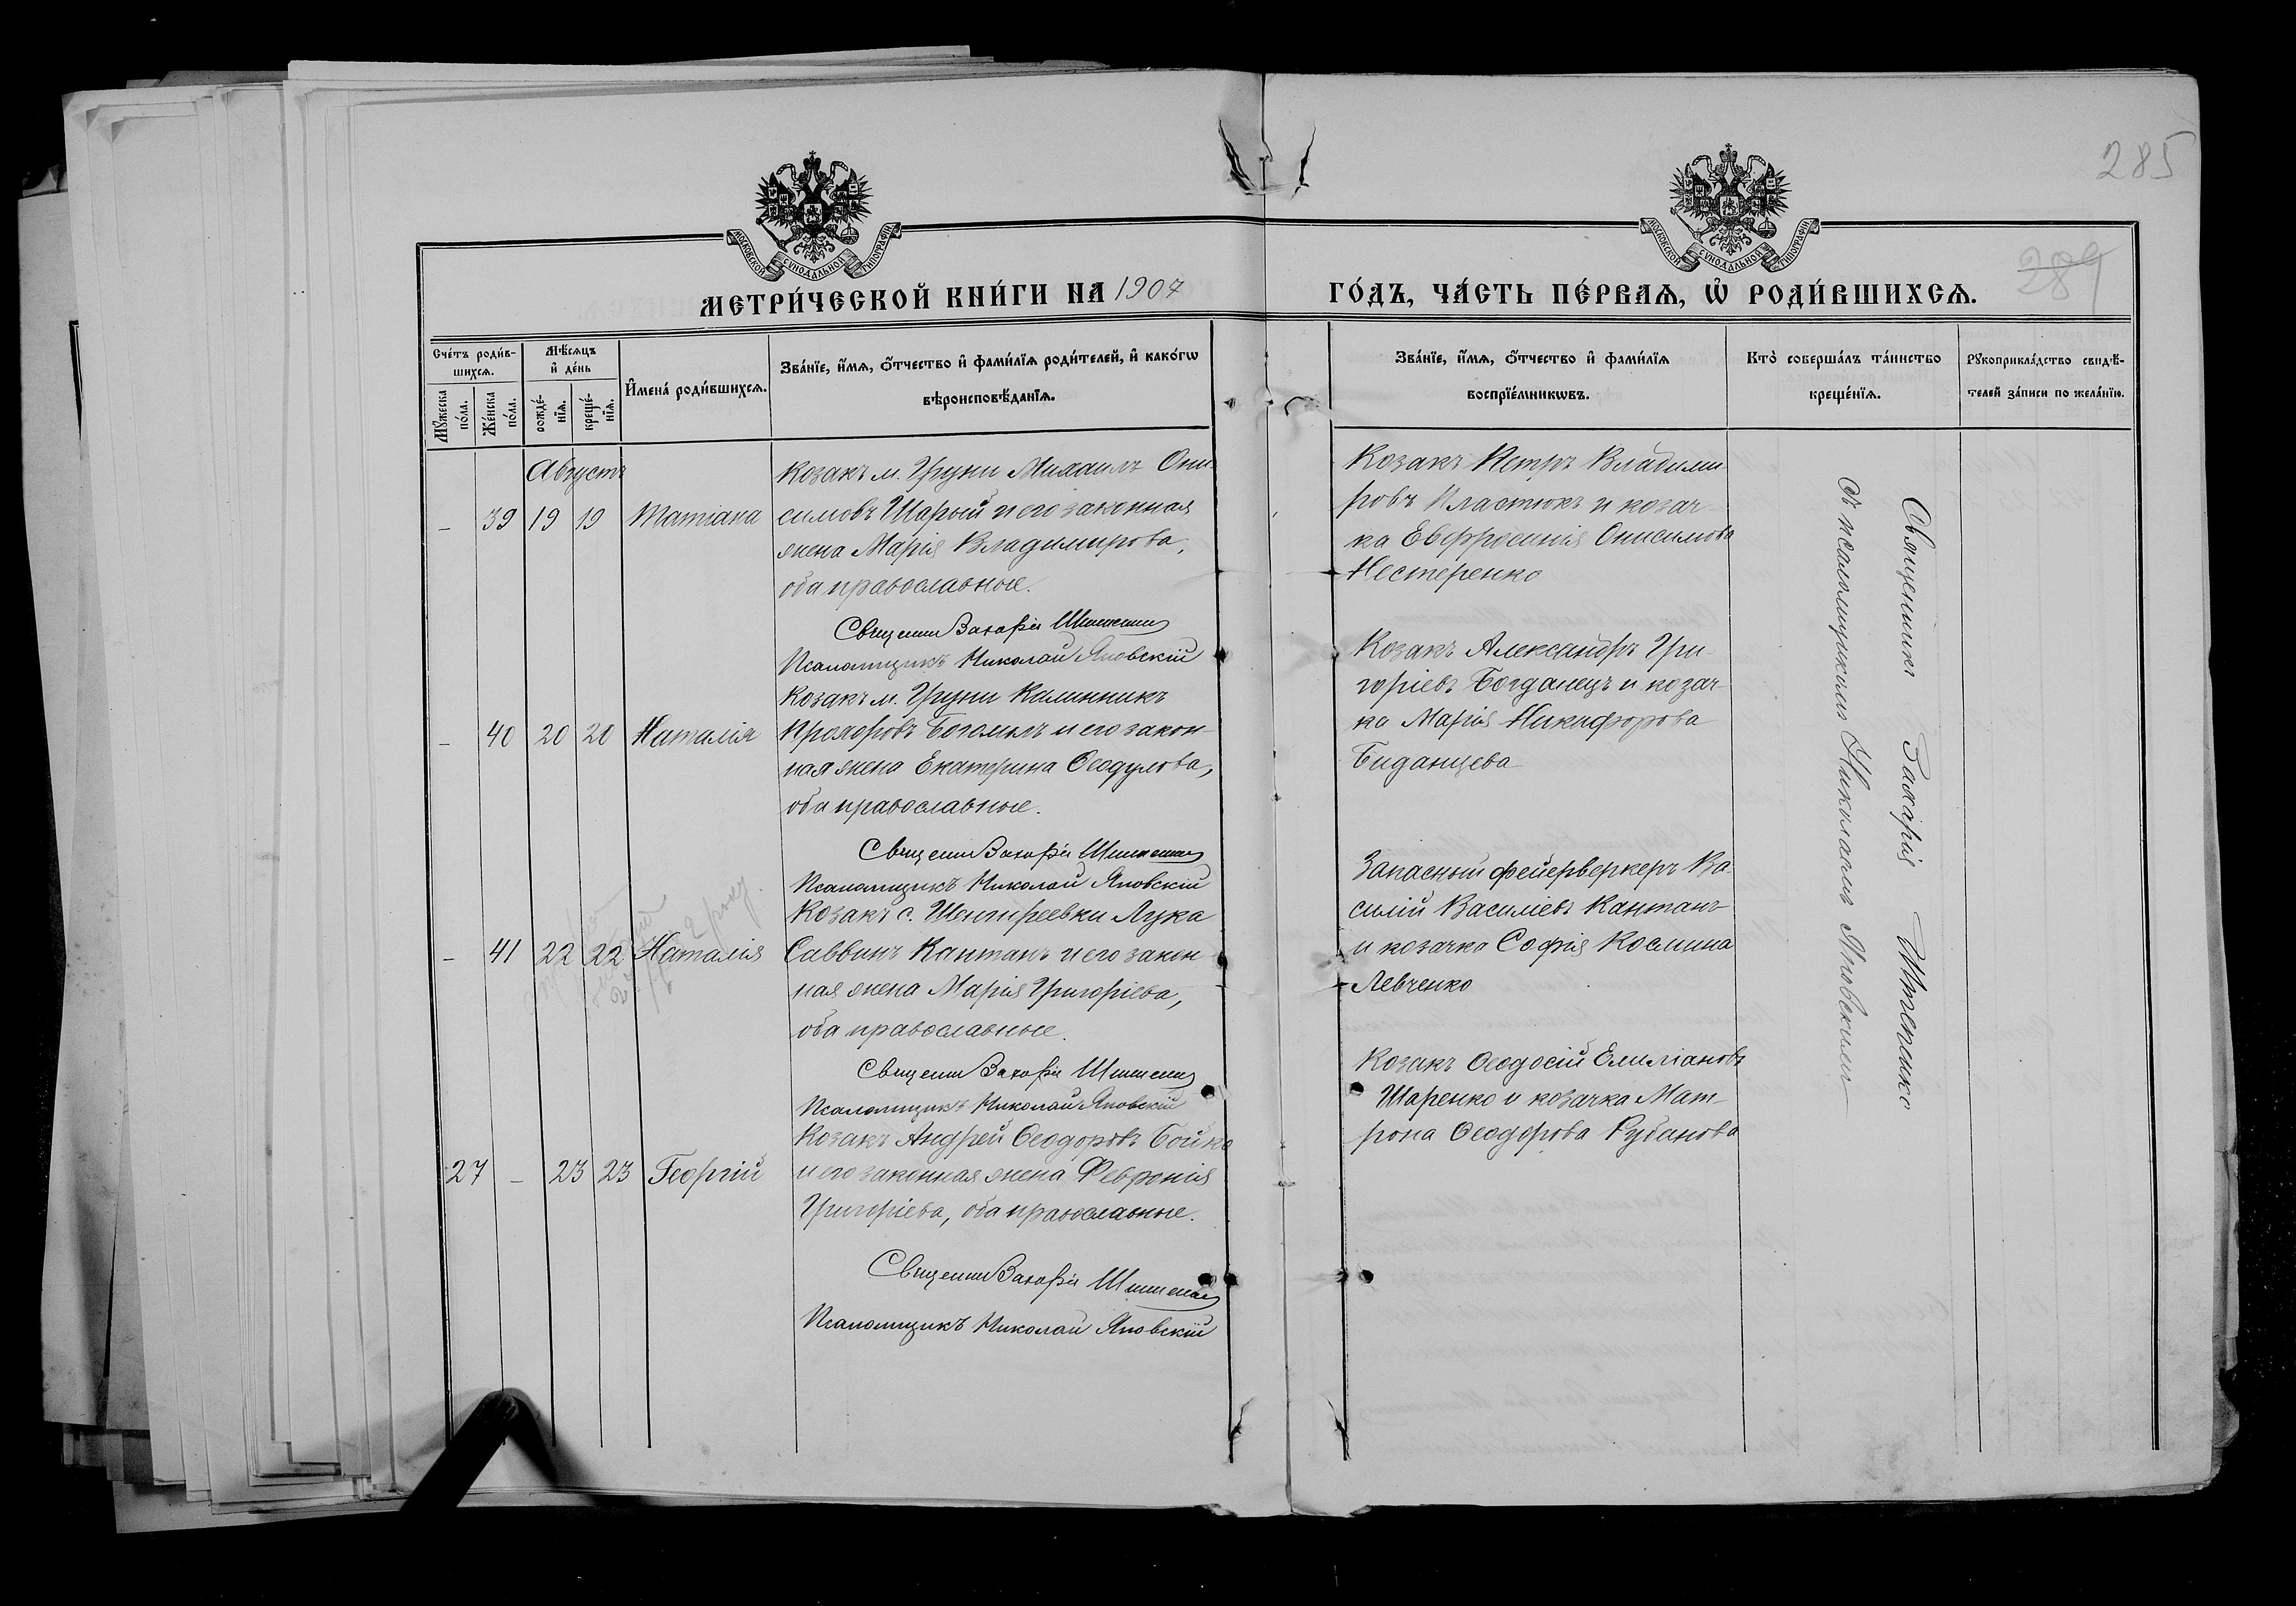 285
289
МОСКОВСКОЙ СУНОДАЛЬНОЙ ТИПОГРАФІИ
МОСКОВСКОЙ СУНОДАЛЬНОЙ ТИПОГРАФІИ
МЕТРИ́ЧЕСКОЙ КНИ́ГИ НА 1907
ГО́ДЪ, ЧА́СТЬ ПЕ́РВАѦ, Ѽ РОДИ́ВШИХСѦ.
Сче́тъ роди́в-
шихсѧ.
Мꙋ́жеска
по́ла.
Же́нска
по́ла.
Мѣ́сѧцъ
и҆ де́нь
рожде́-
нїѧ.
креще́-
нїѧ.
И҆мена̀ роди́вшихсѧ.
Зва́нїе, и҆́мѧ, ѻ҆́тчество и҆ фами́лїѧ роди́телей, и҆ како́гѡ
вѣроисповѣ́данїѧ.
Зва́нїе, и҆́мѧ, ѻ҆́тчество и҆ фами́лїѧ
воспрїе́мникѡвъ.
Кто̀ соверша́лъ та́инство
креще́нїѧ.
Рꙋкоприкла́дство свидѣ́-
телей за́писи по жела́нїю.
Августъ
– 39 19 19 Татіана
Козакъ м. Груни Михаилъ Они-
симовъ Шарый и его законная
жена Марія Владимирова,
оба православные.
Священ Захарія Шитенко
Псаломщикъ Николай Яновскій
Козакъ Петръ Владими-
ровъ Пластюкъ и козач-
ка Евфросинія Онисимова
Нестеренко
– 40 20 20 Наталія
Козакъ м. Груни Калинникъ
Прохоровъ Богомолъ и его закон-
ная жена Екатерина Ѳеодулова,
оба православные.
Священ Захарія Шитенко
Псаломщикъ Николай Яновскій
Козакъ Александръ Гри-
горіевъ Богданецъ и козач-
ка Марія Никифорова
Биданцева
– 41 22 22 Наталія
Козакъ с. Шенгиреевки Лука
Саввинъ Каптанъ и его закон-
ная жена Марія Григоріева,
оба православные.
Священ Захарія Шитенко
Псаломщикъ Николай Яновскій
Запасный фейерверкеръ Ва-
силій Василіевъ Каптанъ
и козачка Софія Космина
Левченко
27 – 23 23 Георгій
Козакъ Андрей Ѳеодоровъ Бойко
и его законная жена Февронія
Григоріева, оба православные.
Священ Захарія Шитенко
Псаломщикъ Николай Яновскій
Козакъ Ѳеодосій Емиліановъ
Шаренко и козачка Мат-
рона Ѳеодорова Рубанова
Священникъ Захарія Шитенко
съ псаломщикомъ Николаемъ Яновскимъ